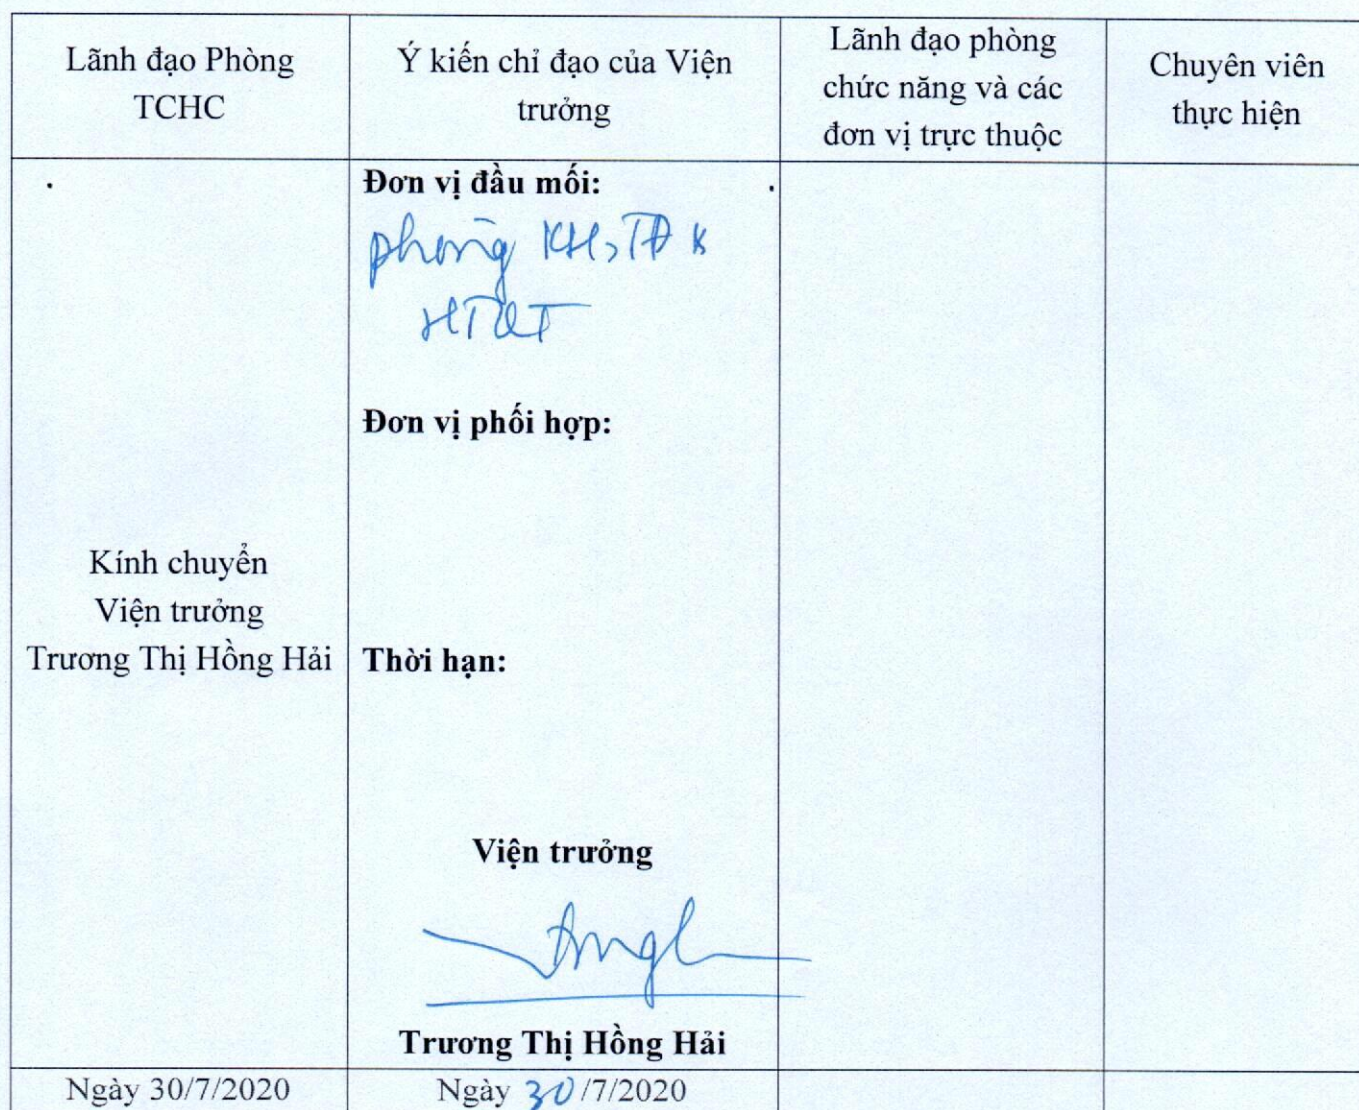 Lãnh đạo Phòng
TCHC
Ý kiến chỉ đạo của Viện
trưởng
Lãnh đạo phòng
chức năng và các
đơn vị trực thuộc
Chuyên viên
thực hiện
Kính chuyển
Viện trưởng
Trương Thị Hồng Hải
Đơn vị đầu mối:
phòng KH,TĐ &
HTQT
Đơn vị phối hợp:
Thời hạn:
Viện trưởng
Trương Thị Hồng Hải
Ngày 30/7/2020
Ngày 30/7/2020